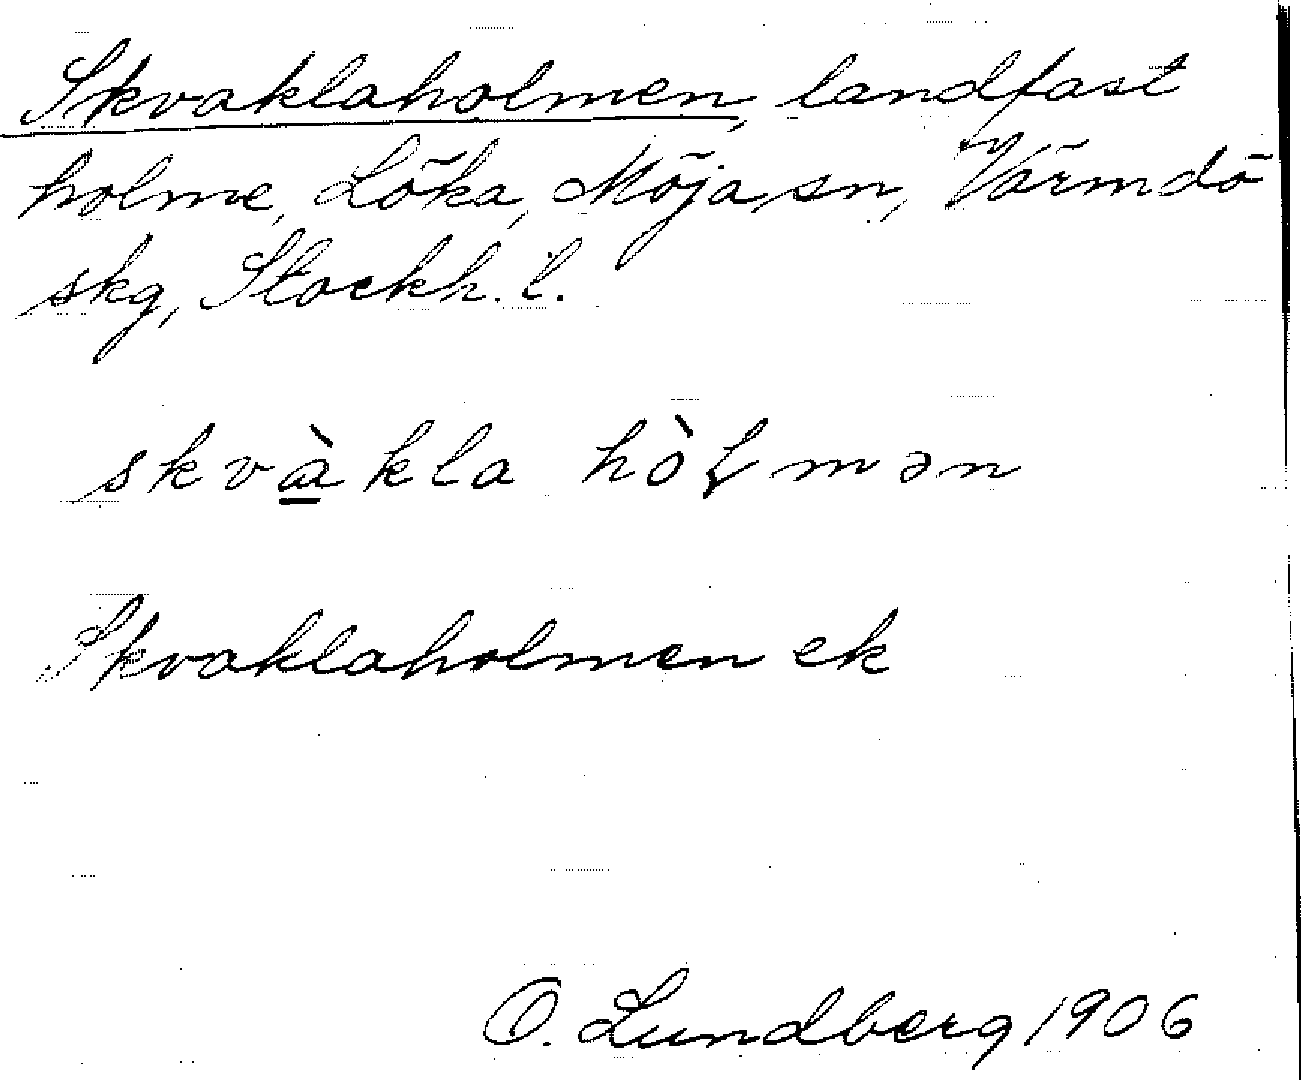 Skvaklaholmen, landfast
holme, Löka, Möja sn, Värmdö
skg, Stockh. l.
skvàkla hòɽmən
Skvaklaholmen ek
O. Lundberg 1906